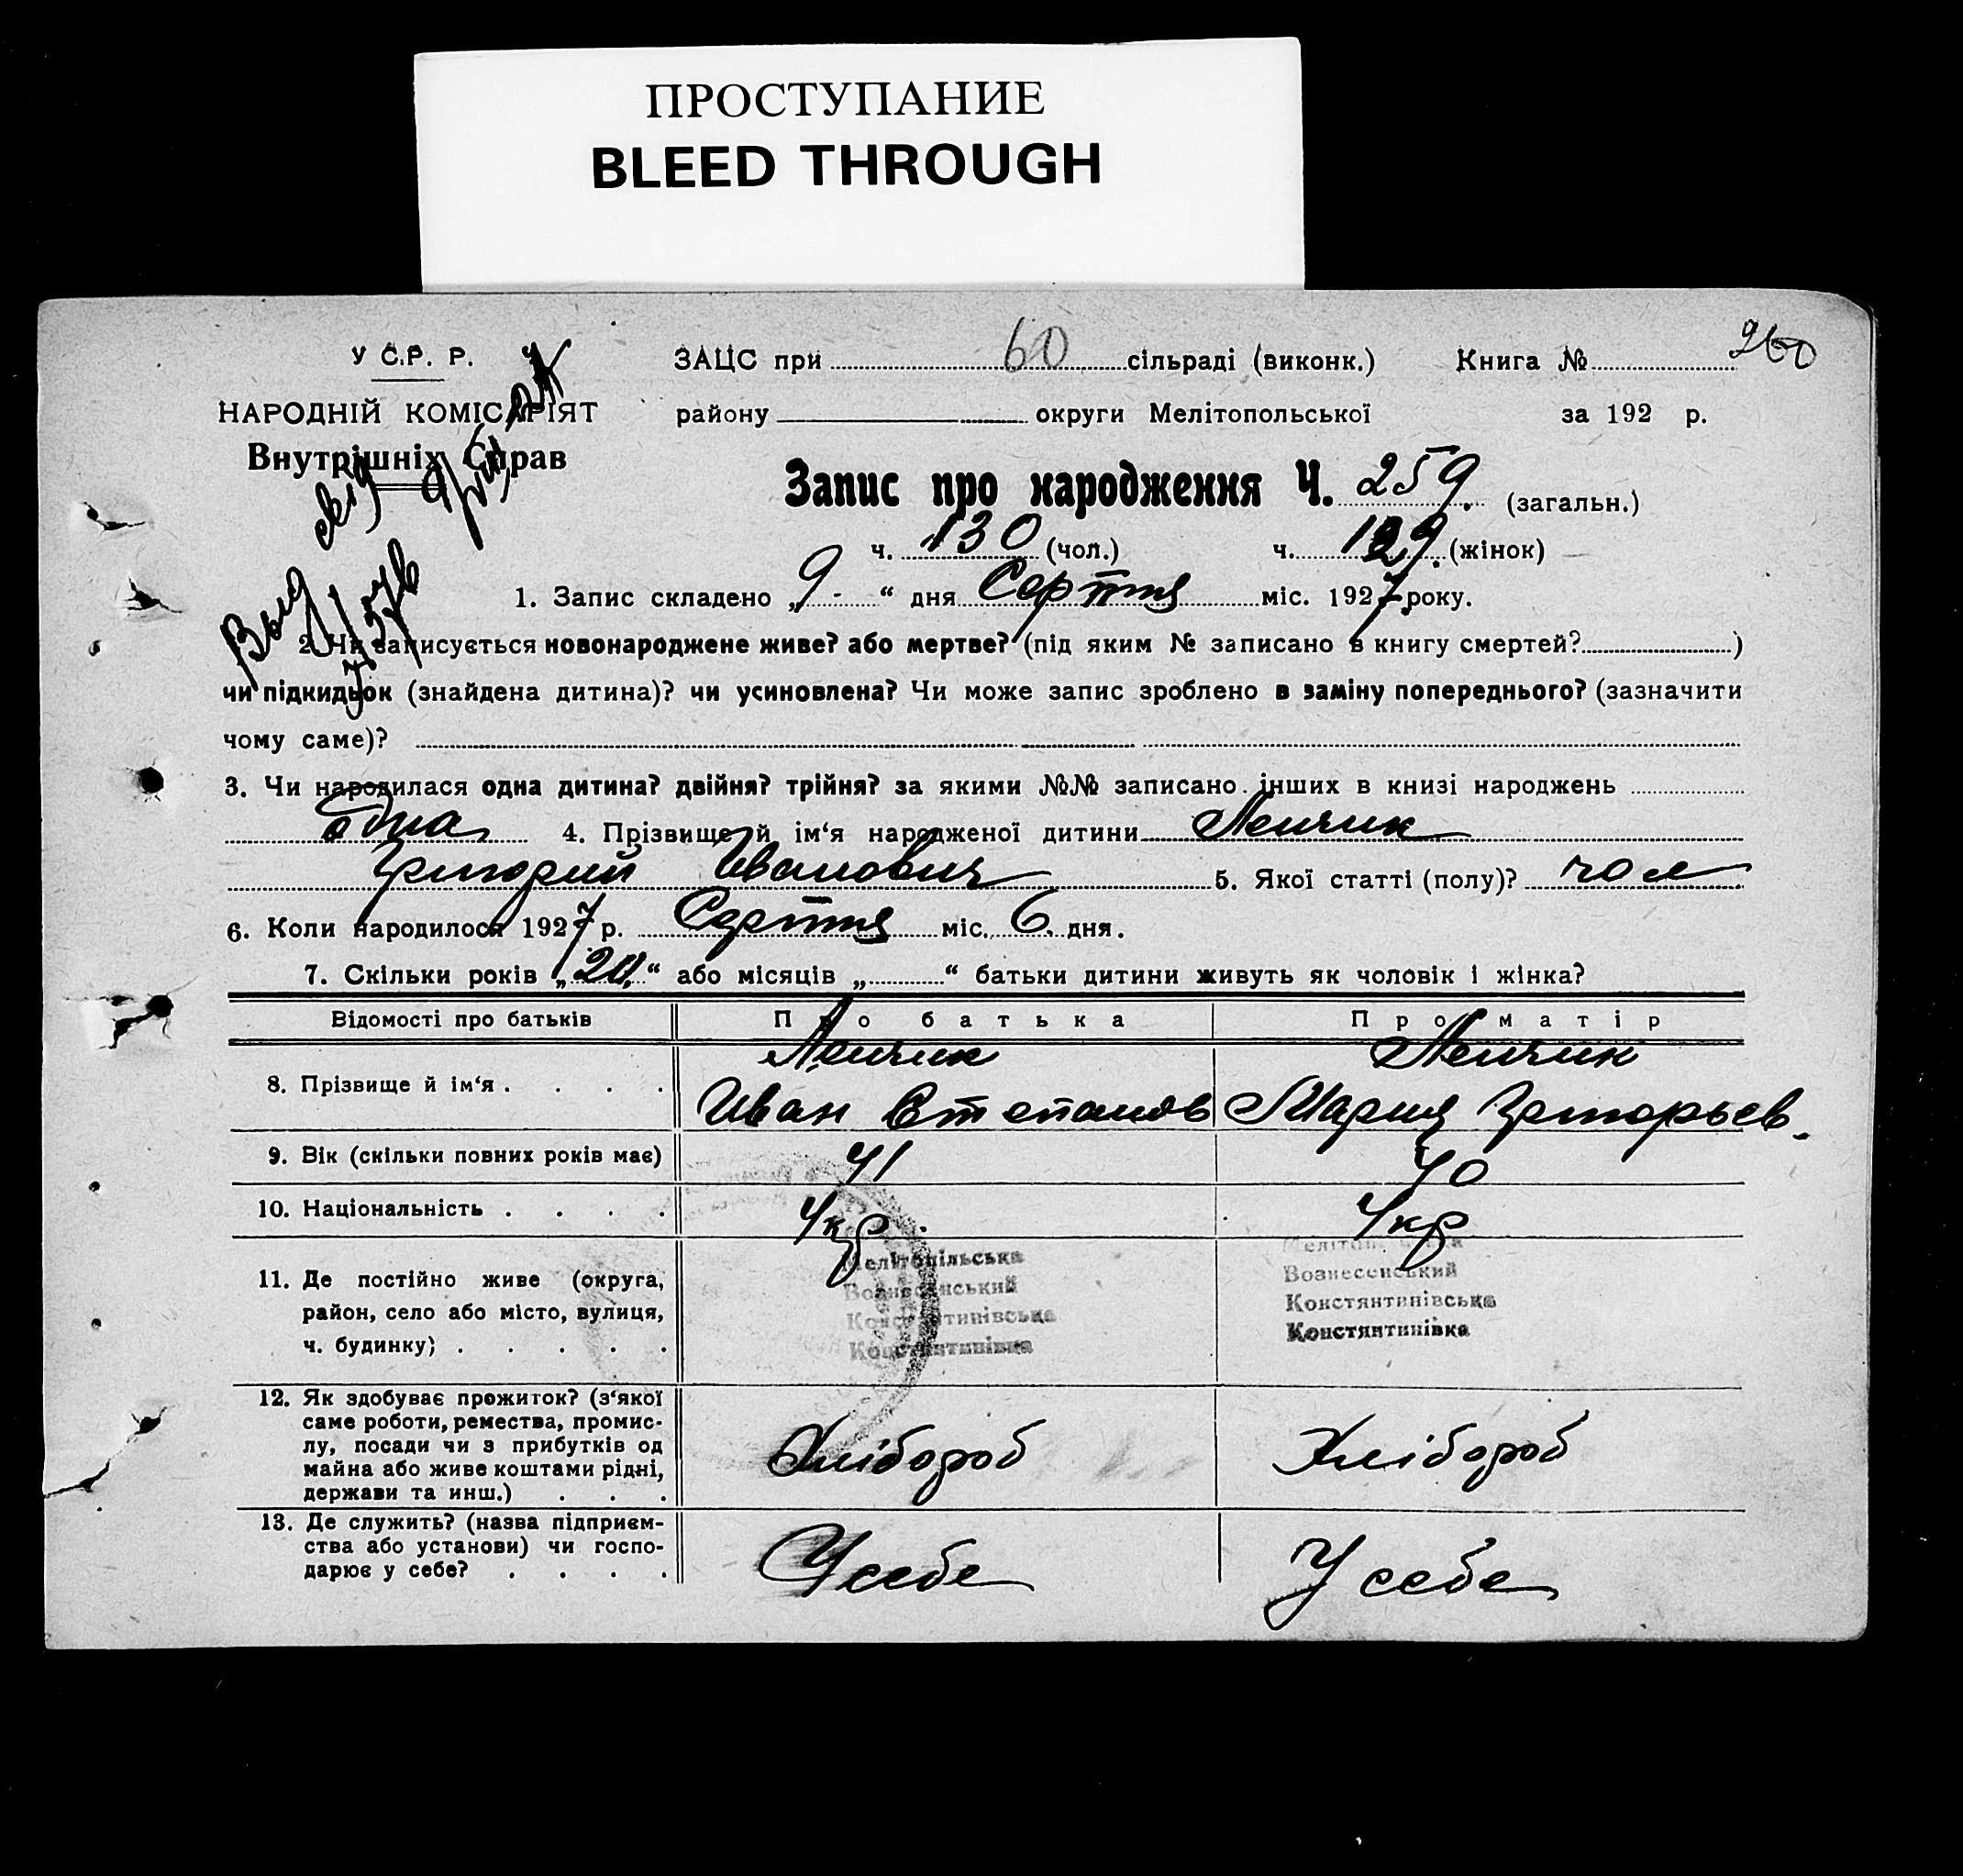 ПРОСТУПАНИЕ
BLEED THROUGH
У С.Р. Р.
НАРОДНІЙ КОМІСАРІЯТ
Внутрішніх Справ
ЗАЦС при 60 сільраді (виконк.) Книга №
260
району округи Мелітопольської за 192 р.
Запис про народження Ч. 259 (загальн.)
ч. 130 (чол.) ч. 129 (жінок)
1. Запис складено „9“ дня Серпня міс. 1927 року.
2. Чи записується новонароджене живе? або мертве? (під яким № записано в книгу смертей? )
чи підкидьок (знайдена дитина)? чи усиновлена? Чи може запис зроблено в заміну попереднього? (зазначити
чому саме)?
3. Чи народилася одна дитина? двійня? трійня? за якими №№ записано інших в книзі народжень
одна 4. Прізвище й ім‘я народженої дитини
Григорий Иванович 5. Якої статті (полу)? чол
6. Коли народилося 1927 р. Серпня міс. 6 дня.
7. Скільки років „20“ або місяців „ “ батьки дитини живуть як чоловік і жінка?
Відомості про батьків Про батька Про матір
8. Прізвище й ім‘я . . . .
Иван Степанов Мария Григорьев.
9. Вік (скільки повних років має) 41 40
10. Національність . . . . Укр. Укр
11. Де постійно живе (округа,
район, село або місто, вулиця,
ч. будинку; . . . . .
Мелітопільська
Вознесенський
Констянтинівська
Констянтинівка
Мелітопільська
Вознесенський
Констянтинівська
Констянтинівка
12. Як здобуває прожиток? (з‘якої
саме роботи, ремества, промис-
лу, посади чи з прибутків од
майна або живе коштами рідні,
держави та инш.) . . .
Хлібороб Хлібороб
13. Де служить? (назва підприєм-
ства або установи) чи госпо-
дарює у себе? . . . .
У себе У себе